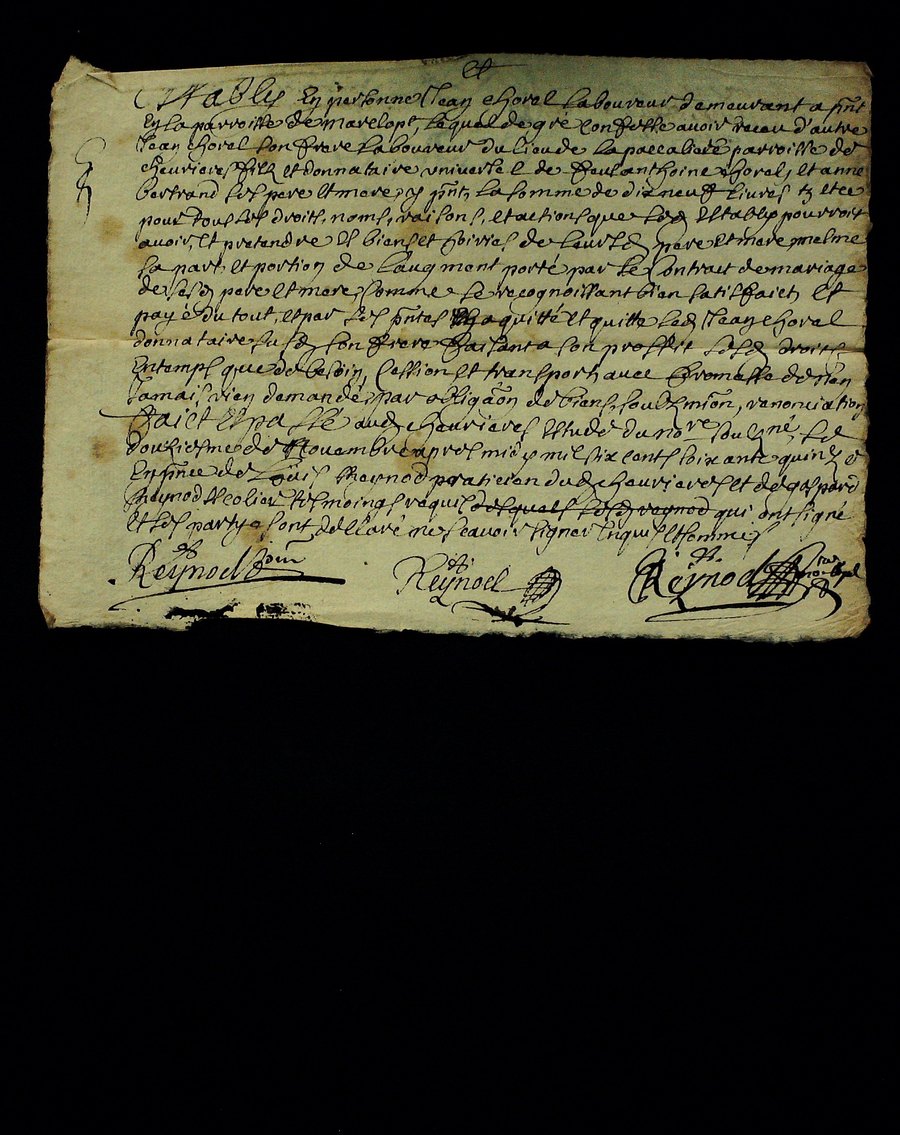 Estably En personne Jean chorel Laboureur demeurant a pnt
En la parroisse de marclopt, Lequel de gré Confesse avoir receu d'autre
Jean chorel son frere Laboureur du Lieu de la parroisse de
cheurieres filz et donnataire universel de feu anthoine chorel, et anne
bertrand ses pere et mere, cy pnt, La somme de dix neuf Livres tz et ce
pour tous ses droits, noms, raisons, et actions que Led Estably pourroit
avoir, et pretendre Es biens et hoiries de Leursd pere et mere mesme
sa part et portion de L'augment porté par Le Contract de mariage
de sesd pere et mere, Comme se recognoissant bien satisfaict Et
payé du tout, et par Les pntes a quitté et quitte Led Jean chorel
donnataire susd son frere faisant a son proffit desd droits
En temps que de besoin, Cession et transport avec Promesse de n'en
Jamais rien demander, par obligaon de biens, soubzmion, renonciation
faict Et passé aud cheurieres Estude du nore soubzné, Le
douziesme de Novembre apres midy mil six cents soixante quinze
En pnce de Louis Reynod praticien dud cheurieres et de gaspard
Reynod Escolier tesmoings requis desquels Led reynod qui ont signé
Et Les partyes ont declaré ne scavoir signer Enquis et sommes
Reynod pnt
Reynod
Reynod